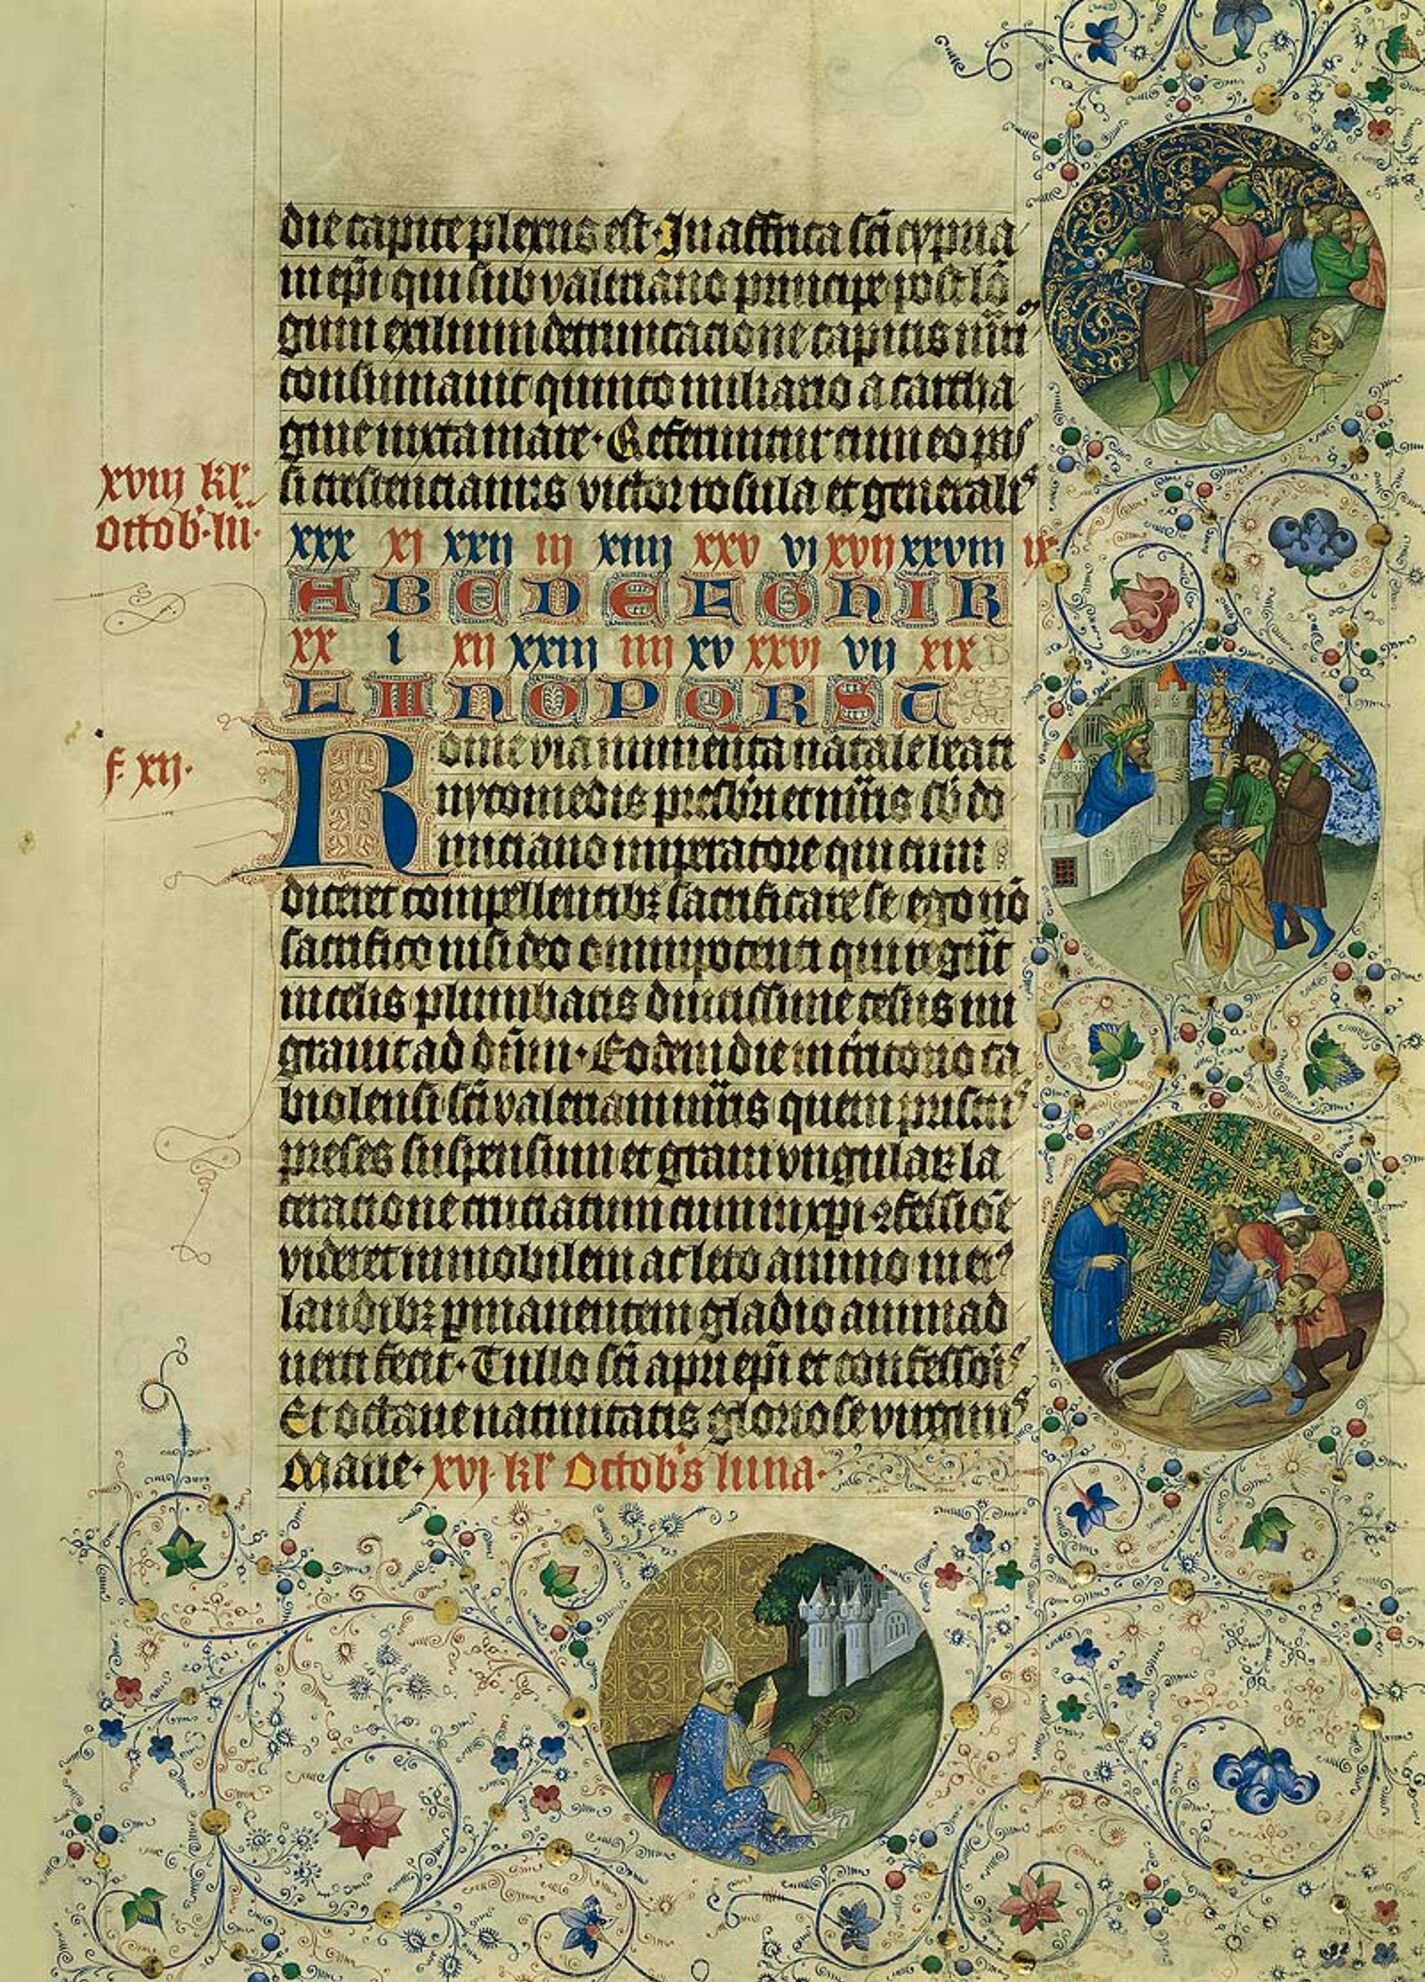 die capite plexus est. In affrica sci cypria
ni epi qui sub valeriano principe post lo
gum exilium detruncatione capitis mrm
consumauit quinto miliario a cartha
gine iuxta mare. Referuntur cum eo pas
si crescentianus victor rosula et generalis
xviij kl'
octob. lu.
xxx xi xxij iij xiiij xxv vi xvij xxviij ix
A B C D E F G H I K
xx i xij xxiij iiij xv xxvi vij xix
L M N O P Q R S T
f. xij.
Rome via numenta natale beati
nycomedis presbri et mris sb do
miciano imperatore qui cum
diceret compellentibz sacrificare se ego no
sacrifico nisi deo omnipotenti qui regnat
in celis plumbatis diutissime cesus mi
grauit ad dnm. Eodem die in trinono ca
biolensi sci valeriani mris quem priscus
preses suspensum et graui vngularz la
ceratione cruciatum cum in xpi 2fessioe
videret immobilem ac leto animo in eius
laudibz pmanentem gladio animad
uerti fecit. Tullo sci apri epi et confessoris
Et octaue natiuitatis gloriose virginis
Marie. xvj kl' Octobs luna.